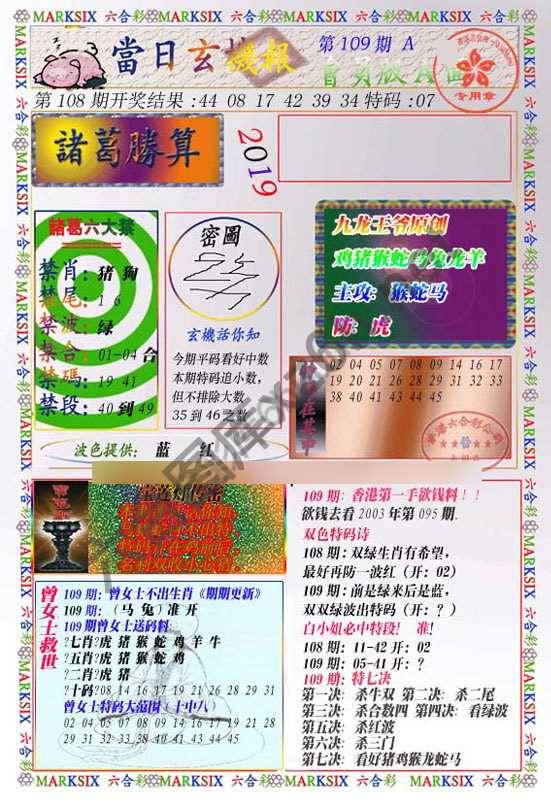 MARKSIX 六合彩 MARKSIX 六合彩 MARKSIX 六合彩 MARKSIX 六合彩
當日玄機報
第109期 A
會員版A面
专用章
第108期开奖结果:44 08 17 42 39 34特码:07
諸葛勝算
2019
諸葛六大禁
禁肖:猪狗
禁尾:1 6
禁波:绿
禁合:01-04合
禁碼:19 41
禁段:40到49
密圖
玄機話你知
今期平码看好中数
本期特码追小数,
但不排除大数
35到46之数
九龙王爷原创
鸡猪猴蛇马兔龙羊
主攻: 猴蛇马
防: 虎
在其中
02 04 05 07 08 09 14 16 17
19 20 21 26 28 29 31 32 33
38 40 41 43 44 45
香港六合彩公司
波色提供: 蓝 红
曾女士救世
109期:曾女士不出生肖《期期更新》
109期:(马兔)准开
109期曾女士送码料:
?七肖?虎猪猴蛇鸡羊牛
?五肖?虎猪猴蛇鸡
?二肖?虎猪
?十码?08 14 16 17 19 21 26 28 29 31
曾女士特码大范围(十中八)
02 04 05 07 08 09 14 16 17 19 21 28
29 31 32 33 38 40 41 43 44 45
109期: 香港第一手欲钱料!!
欲钱去看2003年第095期.
双色特码诗
108期:双绿生肖有希望,
最好再防一波红(开:02)
109期:前是绿来后是蓝,
双双绿波出特码(开:?)
白小姐必中特段! 准!
108期: 11-42开:02
109期: 05-41开:?
109期: 特七决
第一决: 杀牛双 第二决: 杀二尾
第三决: 杀合数四 第四决: 看绿波
第五决: 杀红波
第六决: 杀三门
第七决: 看好猪鸡猴龙蛇马
MARKSIX 六合彩 MARKSIX 六合彩 MARKSIX 六合彩 MARKSIX 六合彩